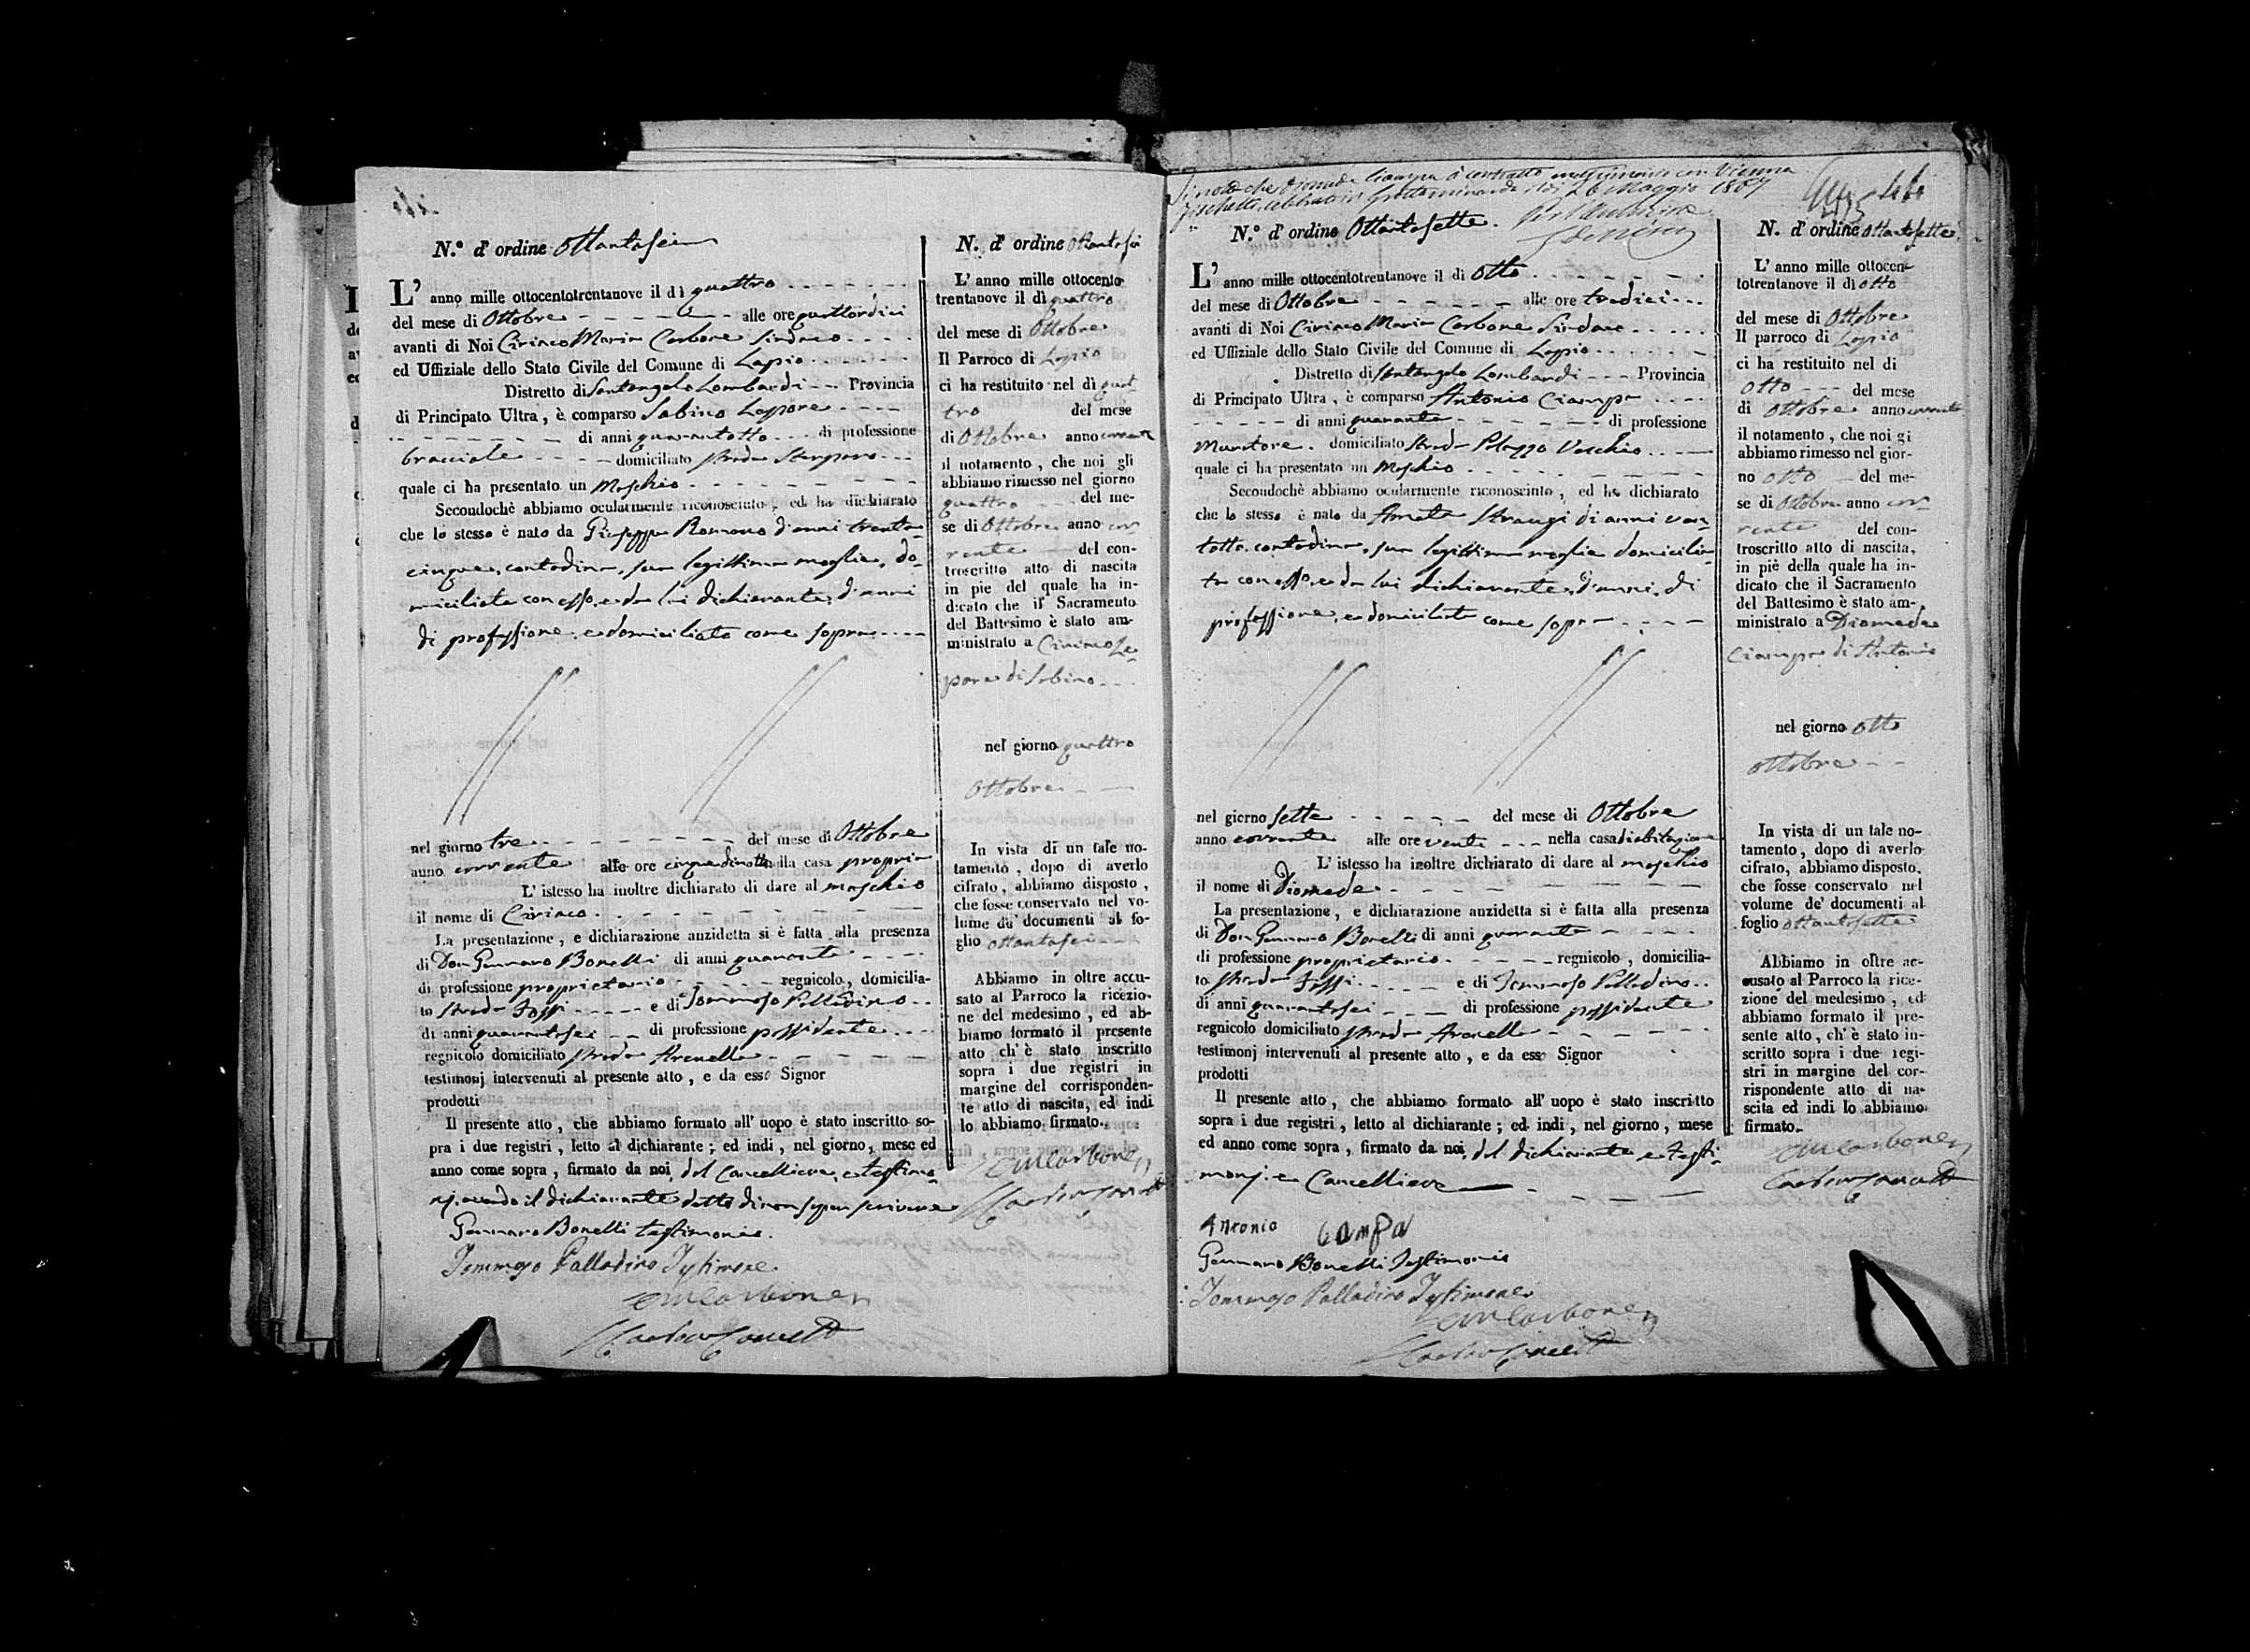 N.° d' ordine Ottantasei
L' anno mille ottocentotrentanove il dì quattro
del mese di Ottobre alle ore quattordici
avanti di Noi Ciriaco Maria Carbone Sindaco
ed Uffiziale dello Stato Civile del Comune di Lapio
Distretto di Santangelo Lombardi Provincia
di Principato Ultra, è comparso Sabino Lepore
di anni quarantotto di professione
bracciale domiciliato strada
quale ci ha presentato un Maschio
Secondochè abbiamo ocularmente riconosciuto, ed ha dichiarato
che lo stesso è nato da Giuseppa Romano d'anni trenta
cinque, contadina, sua legittima moglie, do-
miciliata con esso, e da lui dichiarante, d'anni
di professione, e domiciliato come sopra
nel giorno tre del mese di Ottobre
anno corrente alle ore cinque di notte nella casa propria
L' istesso ha inoltre dichiarato di dare al maschio
il nome di Ciriaco
La presentazione, e dichiarazione anzidetta si è fatta alla presenza
di Don Gennaro Bonelli di anni quaranta
di professione proprietario regnicolo, domicilia-
to strada Fossi e di Tommaso Palladino
di anni quarantasei di professione possidente
regnicolo domiciliato strada Arenella
testimonj intervenuti al presente atto, e da esso Signor
prodotti
Il presente atto, che abbiamo formato all' uopo è stato inscritto so-
pra i due registri, letto al dichiarante; ed indi, nel giorno, mese ed
anno come sopra, firmato da noi, dal Cancelliere, e testimo-
nj, avendo il dichiarante detto di non saper scrivere
Gennaro Bonelli testimonio
Tommaso Palladino Testimone
CMCarbone
N. d' ordine Ottantasei
L' anno mille ottocento
trentanove il dì quattro
del mese di Ottobre
Il Parroco di Lapio
ci ha restituito nel dì quat
tro del mese
di Ottobre anno corrente
il notamento, che noi gli
abbiamo rimesso nel giorno
quattro del me-
se di Ottobre anno cor
rente del con-
troscritto atto di nascita
in piè del quale ha in-
dicato che il Sacramento
del Battesimo è stato am-
ministrato a Ciriaco Le-
pore di Sabino
nel giorno quattro
Ottobre
In vista di un tale no-
tamento, dopo di averlo
cifrato, abbiamo disposto,
che fosse conservato nel vo-
lume de' documenti al fo-
glio ottantasei
Abbiamo in oltre accu-
sato al Parroco la ricezio-
ne del medesimo, ed ab-
biamo formato il presente
atto ch' è stato inscritto
sopra i due registri in
margine del corrisponden-
te atto di nascita, ed indi
lo abbiamo firmato.
CMCarbone
Si nota che Diomede Ciampa à contratto matrimonio con Vienna
celebrato in Grottaminarda il dì 26 Maggio 1867
N.° d' ordine Ottantasette.
L' anno mille ottocentotrentanove il dì otto
del mese di Ottobre alle ore tredici
avanti di Noi Ciriaco Maria Carbone Sindaco
ed Uffiziale dello Stato Civile del Comune di Lapio
Distretto di Santangelo Lombardi Provincia
di Principato Ultra, è comparso Antonio Ciampa
di anni quaranta di professione
Muratore. domiciliato strada Palazzo Vecchio
quale ci ha presentato un Maschio
Secondochè abbiamo ocularmente riconosciuto, ed ha dichiarato
che lo stesso è nato da Amata di anni ven-
totto, contadina, sua legittima moglie domicilia-
ta con esso, e da lui dichiarante, d'anni, di
professione, e domiciliato come sopra
nel giorno sette del mese di Ottobre
anno corrente alle ore venti nella casa di abitazione
L' istesso ha inoltre dichiarato di dare al maschio
il nome di Diomede
La presentazione, e dichiarazione anzidetta si è fatta alla presenza
di Don Gennaro Bonelli di anni quaranta
di professione proprietario regnicolo, domicilia-
to strada Fossi e di Tommaso Palladino
di anni quarantasei di professione possidente
regnicolo domiciliato strada Arenella
testimonj intervenuti al presente atto, e da esso Signor
prodotti
Il presente atto, che abbiamo formato all' uopo è stato inscritto
sopra i due registri, letto al dichiarante; ed indi, nel giorno, mese
ed anno come sopra, firmato da noi, dal dichiarante e testi-
monj, e Cancelliere
Antonio Ciampa
Gennaro Bonelli Testimonio
Tommaso Palladino Testimone
CMCarbone
N. d' ordine Ottantasette
L' anno mille ottocen-
totrentanove il dì otto
del mese di Ottobre
Il parroco di Lapio
ci ha restituito nel di
otto del mese
di Ottobre anno corrente
il notamento, che noi gi
abbiamo rimesso nel gior-
no otto del me-
se di Ottobre anno cor-
rente del con-
troscritto atto di nascita,
in piè della quale ha in-
dicato che il Sacramento
del Battesimo è stato am-
ministrato a Diomede
Ciampa di Antonio
nel giorno otto
ottobre
In vista di un tale no-
tamento, dopo di averlo
cifrato, abbiamo disposto,
che fosse conservato nel
volume de' documenti al
foglio ottantasette
Abbiamo in oltre ac-
cusato al Parroco la rice-
zione del medesimo, ed
abbiamo formato il pre-
sente atto, ch' è stato in-
scritto sopra i due regi-
stri in margine del cor-
rispondente atto di na-
scita ed indi lo abbiamo
firmato.
CMCarbone